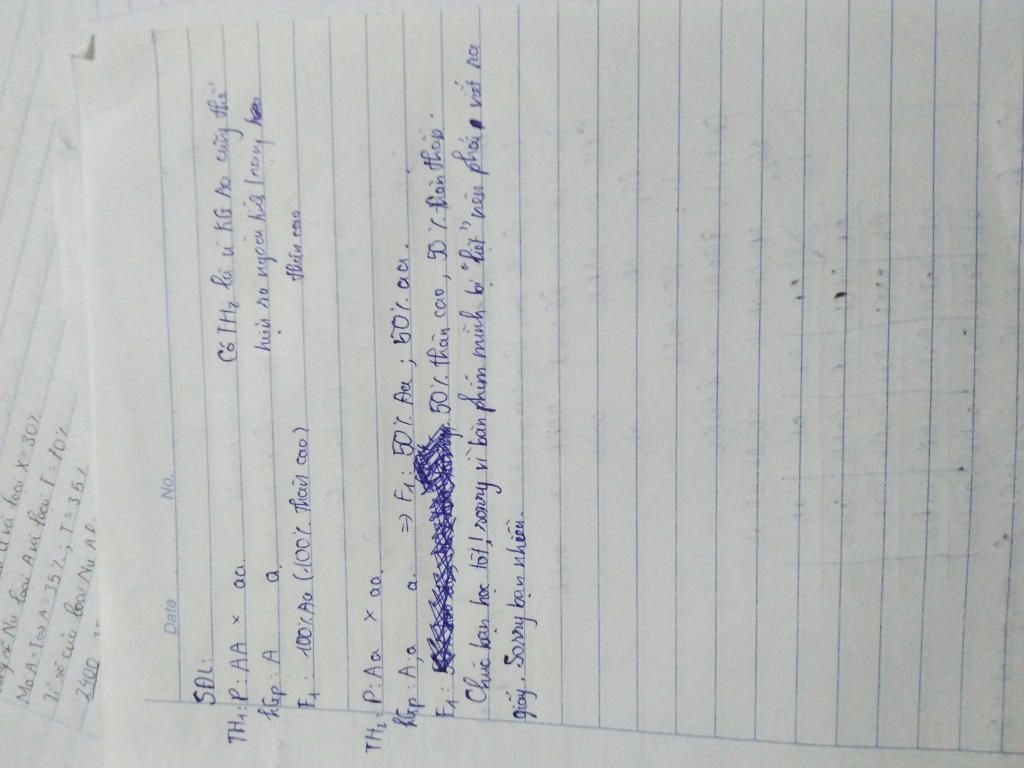 Date No.
SĐL:
TH1: P: AA × aa
Có TH2 là vì KG Aa cũng thể
hiện ra ngoài KH mang
thân cao
Gp: A a
F1: 100% Aa (100% thân cao)
TH2: P: Aa × aa
Gp: A;a a
=> F1: 50% Aa ; 50% aa.
F1: 50% thân cao, 50% thân thấp.
Chúc bạn học tốt, sorry vì bàn phím mình bị "liệt" nên phải viết ra
giấy. Sorry bạn nhiều.
loại X = 30%
loại A và loại T = 70%
Mà A = T => A = 35%; T = 35%
loại Nu A là:
2400